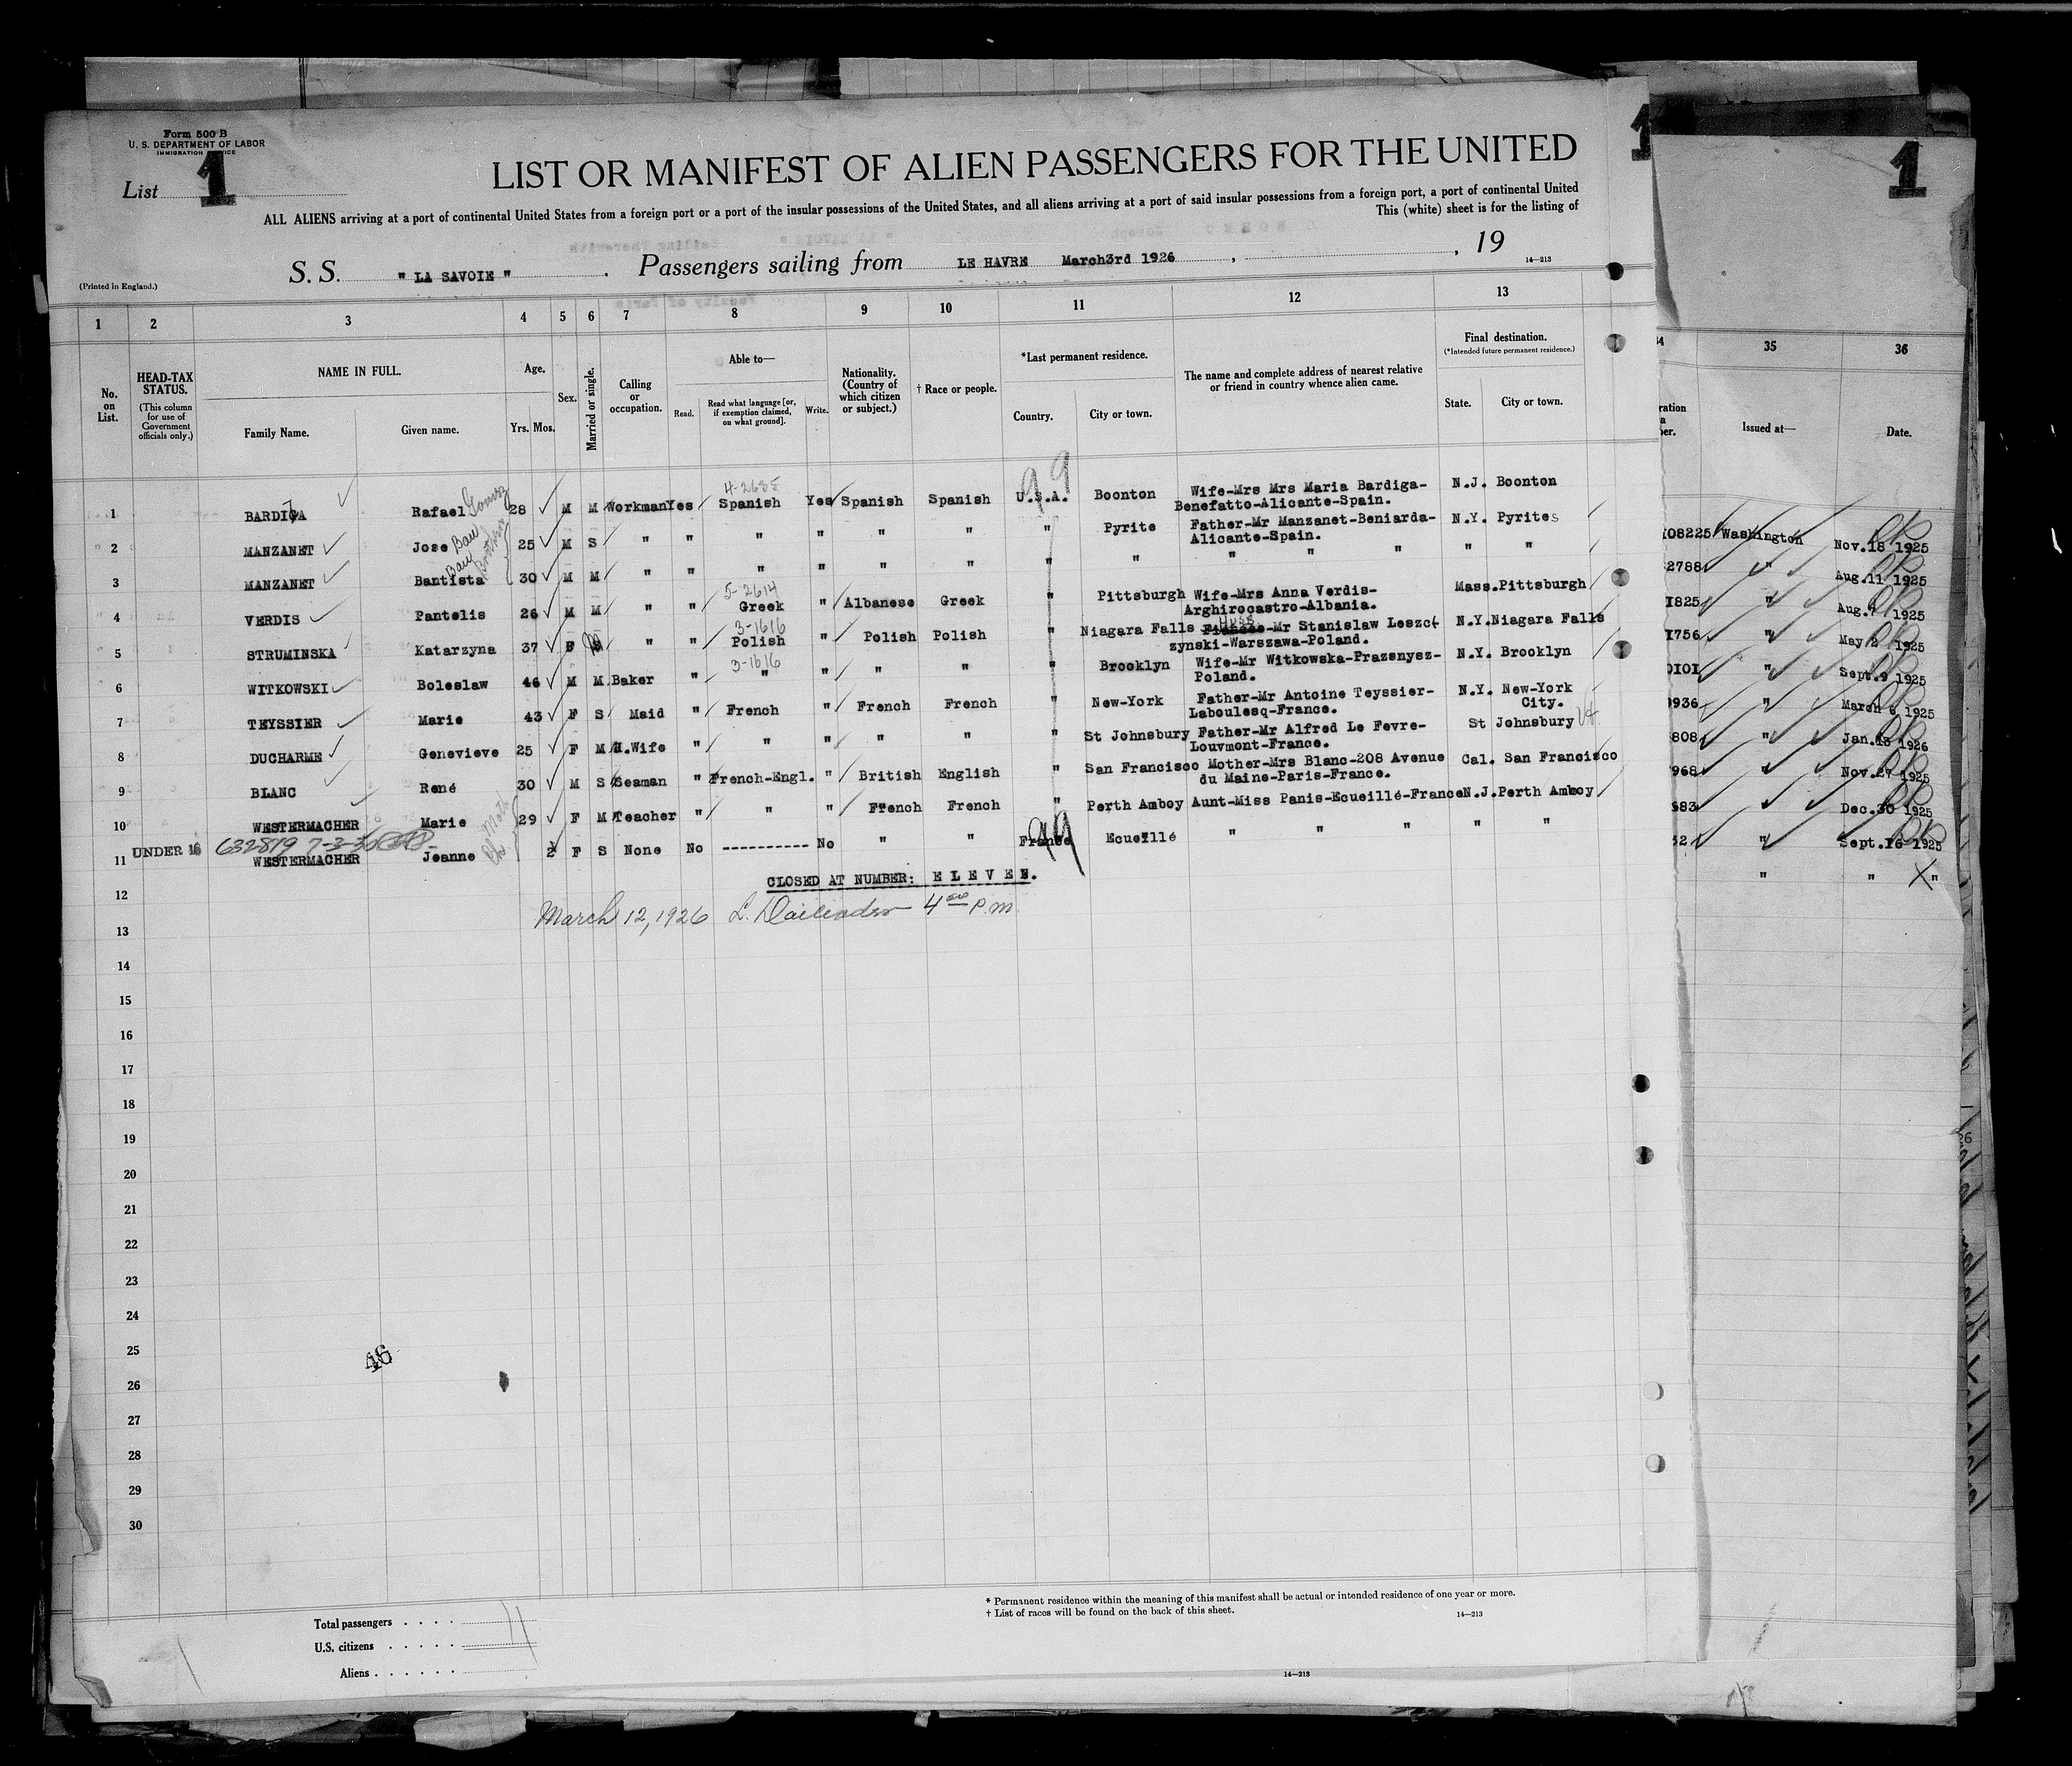 Form 500 B
U. S. DEPARTMENT OF LABOR
IMMIGRATION SERVICE
List 1
1
1
LIST OR MANIFEST OF ALIEN PASSENGERS FOR THE UNITED
ALL ALIENS arriving at a port of continental United States from a foreign port or a port of the insular possessions of the United States, and all aliens arriving at a port of said insular possessions from a foreign port, a port of continental United
This (white) sheet is for the listing of
S. S. " LA SAVOIE " . Passengers sailing from LE HAVRE March3rd 1926 , , 19
14—213
(Printed in England.)
1 2 3 4 5 6 7 8 9 10 11 12 13 35 36
No. on List.
HEAD-TAX STATUS.
(This column for use of Government officials only.)
NAME IN FULL.
Family Name. Given name.
Age.
Yrs. Mos.
Sex.
Married or single.
Calling or occupation.
Able to—
Read. Read what language [or, if exemption claimed, on what ground]. Write.
Nationality. (Country of which citizen or subject.)
† Race or people.
*Last permanent residence.
Country. City or town.
The name and complete address of nearest relative or friend in country whence alien came.
Final destination.
(*Intended future permanent residence.)
State. City or town.
Issued at— Date.
1 BARDIGA Rafael Gomez 28 M M Workman Yes 4-2685 Spanish Yes Spanish Spanish 99 U.S.A. Boonton Wife-Mrs Mrs Maria Bardiga-
Benefatto-Alicante-Spain. N.J. Boonton
2 MANZANET Jose Bau 25 M S " " " " " " " Pyrite Father-Mr Manzanet-Beniarda-
Alicante-Spain. N.Y. Pyrites 108225 Washington Nov.18 1925 OK
3 MANZANET Bantista Bau brother 30 M M " " " " " " " " " " " " " 2788 " Aug.11 1925 OK
4 VERDIS Pantelis 26 M M " " 5-2614 Greek " Albanese Greek " Pittsburgh Wife-Mrs Anna Verdis-
Arghirocastro-Albania. Mass. Pittsburgh 1825 " Aug.7 1925 OK
5 STRUMINSKA Katarzyna 37 F M " " 3-1616 Polish " Polish Polish " Niagara Falls Fiancee-Mr Stanislaw Leszc-
zynski-Warszawa-Poland. N.Y. Niagara Falls 1756 " May 2 1925 OK
6 WITKOWSKI Boleslaw 46 M M Baker " 3-1616 " " " " " Brooklyn Wife-Mr Witkowska-Prazsnysz-
Poland. N.Y. Brooklyn 0101 " Sept.9 1925 OK
7 TEYSSIER Marie 43 F S Maid " French " French French " New-York Father-Mr Antoine Teyssier-
Laboulesq-France. N.Y. New-York
City. 936 " March 6 1925 OK
8 DUCHARME Genevieve 25 F M H.Wife " " " " " " St Johnsbury Father-Mr Alfred Le Fevre-
Louvmont-France. St Johnsbury Vt 808 " Jan.13 1926 OK
9 BLANC René 30 M S Seaman " French-Engl. " British English " San Francisco Mother-Mrs Blanc-208 Avenue
du Maine-Paris-France. Cal. San Francisco 968 " Nov.27 1925 OK
10 WESTERMACHER Marie 29 F M Teacher " " " French French " Perth Amboy Aunt-Miss Panis-Ecueillé-France N.J. Perth Amboy 683 Dec.30 1925 OK
UNDER 16 632879 7-3-30
11 WESTERMACHER Jeanne 2 F S None No ---------- No " " 99 France Ecueillé " " " " " 52 " Sept.16 1925 OK
" " X "
12 CLOSED AT NUMBER: E L E V E N.
March 12, 1926 4 00 P.m.
13
14
15
16
17
18
19
20
21
22
23
24
25
26
27
28
29
30
46
* Permanent residence within the meaning of this manifest shall be actual or intended residence of one year or more.
† List of races will be found on the back of this sheet. 14—213
Total passengers . . . . 11
U.S. citizens . . . . .
Aliens . . . . . .
14—213